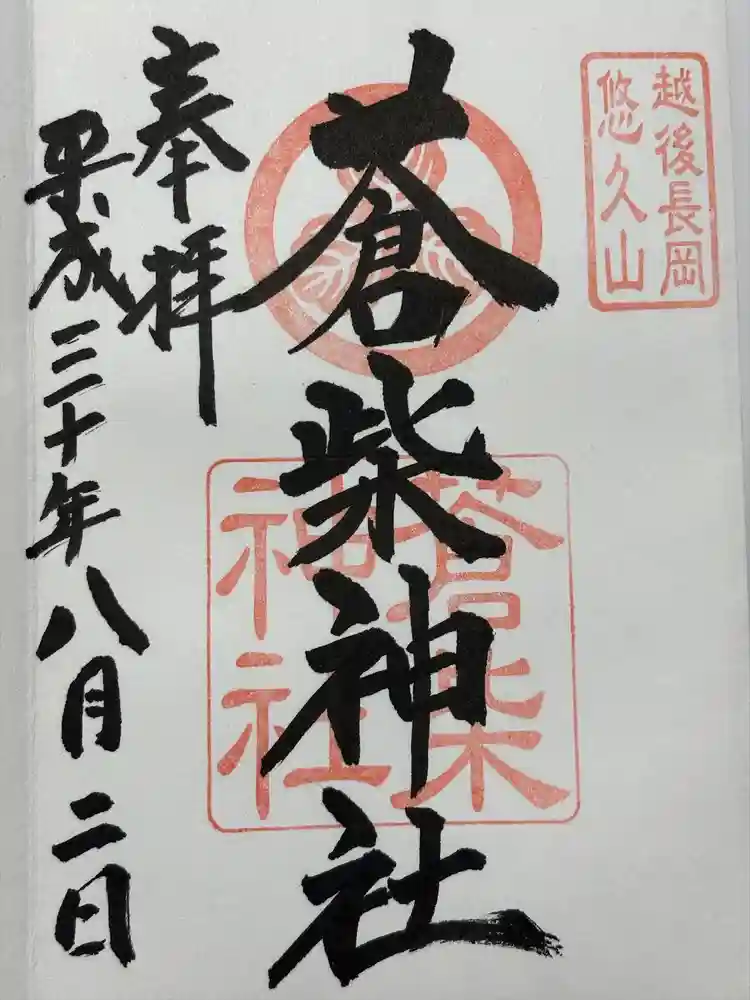 越後長岡
悠久山
蒼柴神社
蒼柴
神社
奉拝
平成三十年八月二日